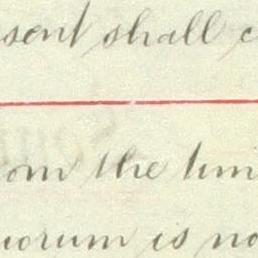 sent shall c
om the tim
uorum is no